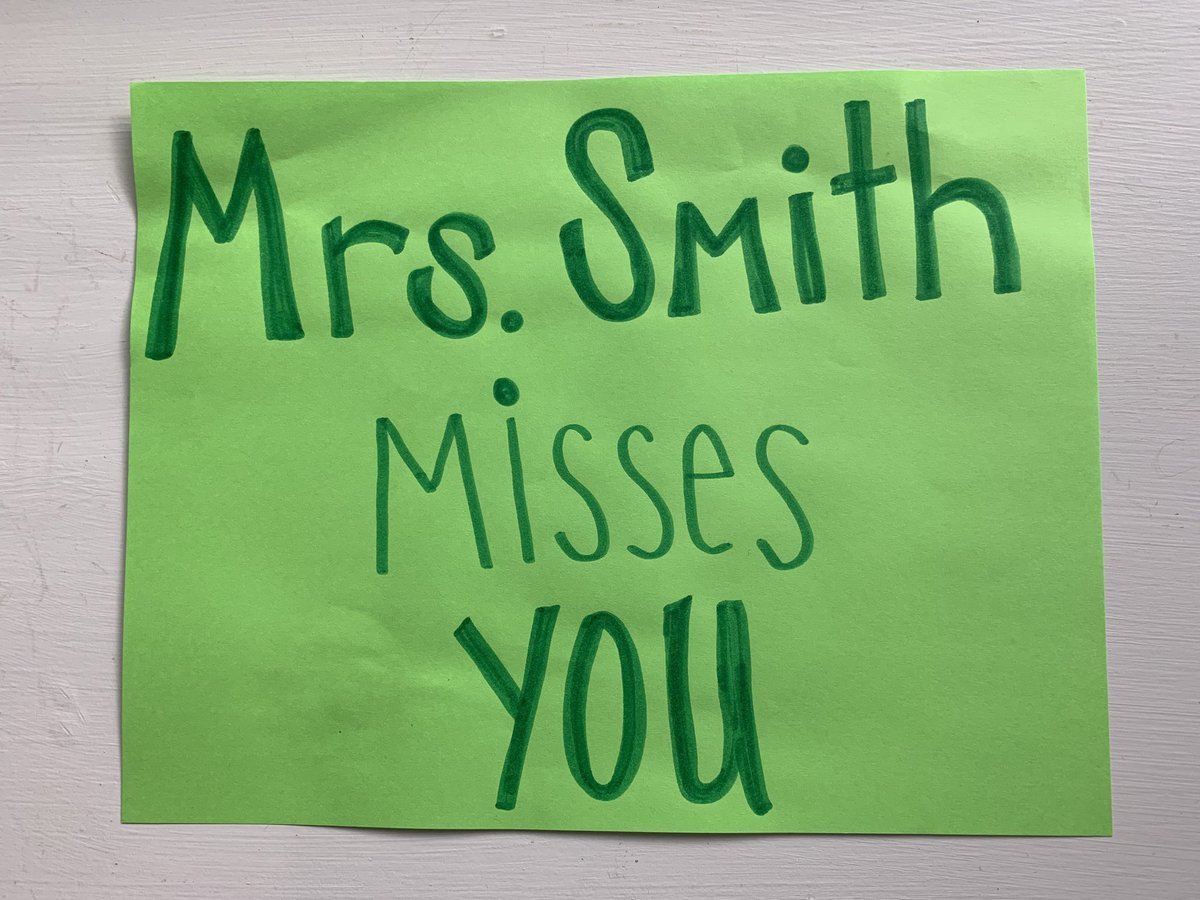 Mrs. Smith
Misses
YOU